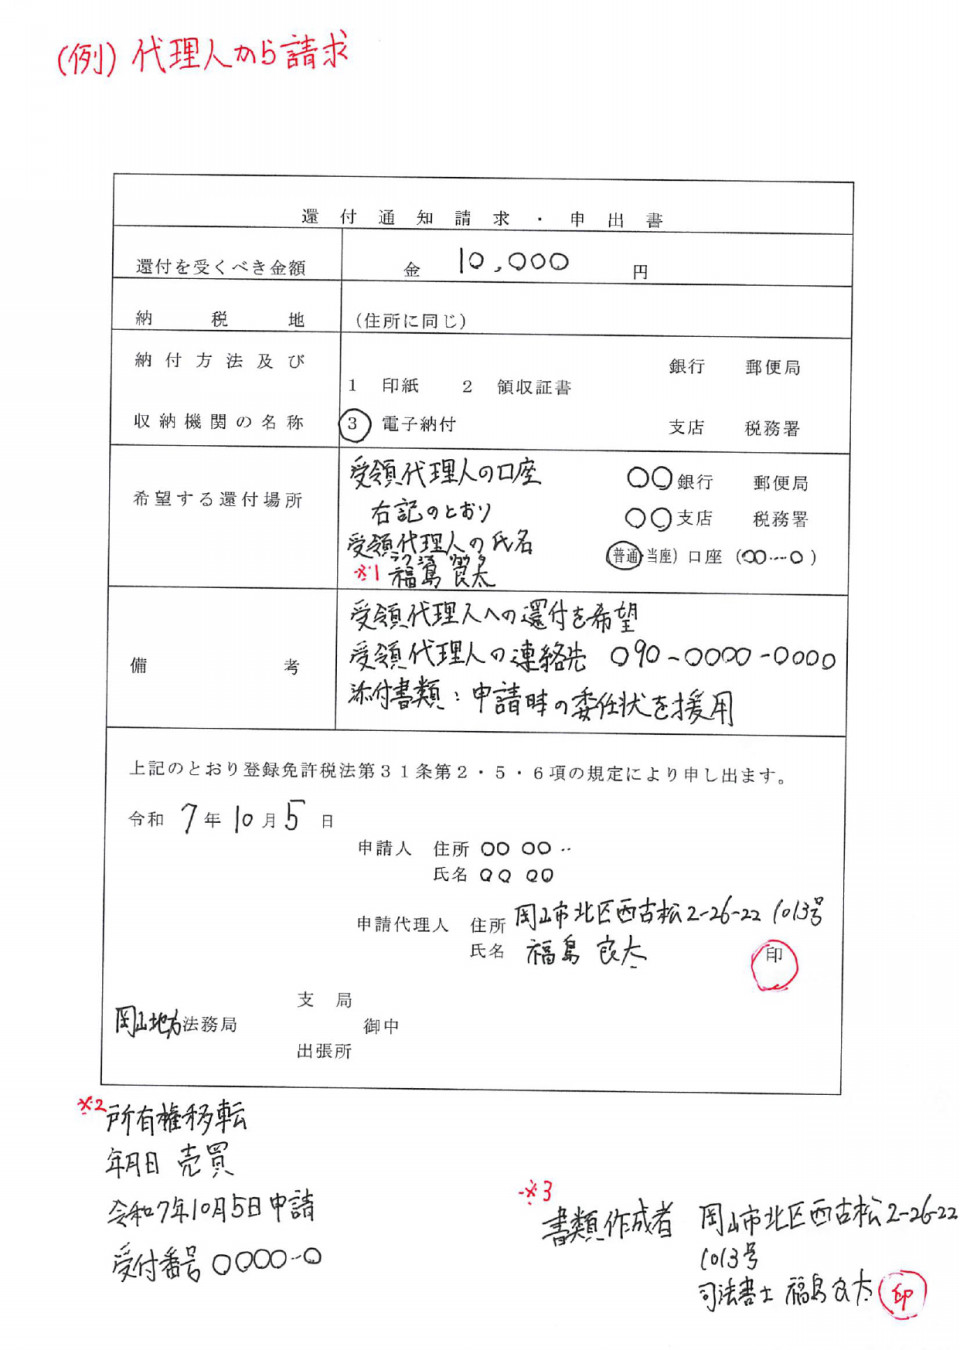 (例)代理人から請求
還付通知請求・申出書
還付を受くべき金額 金 10,000 円
納税地 (住所に同じ)
納付方法及び 銀行 郵便局
1 印紙 2 領収証書
収納機関の名称 3 電子納付 支店 税務署
受領代理人の口座 〇〇銀行 郵便局
希望する還付場所 右記のとおり 〇〇支店 税務署
受領代理人の氏名 (普通 当座) 口座 (〇〇…〇)
※1 福島 良太
受領代理人への還付を希望
備考 受領代理人の連絡先 090-0000-0000
添付書類:申請時の委任状を援用
上記のとおり登録免許税法第31条第2・5・6項の規定により申し出ます。
令和 7年 10月 5日
申請人 住所 〇〇 〇〇‥
氏名 〇〇 〇〇
申請代理人 住所 岡山市北区西古松2-26-22 1013号
氏名 福島 良太 印
支局
岡山地方法務局 御中
出張所
※2 所有権移転
年月日 売買
令和7年10月5日申請
受付番号 〇〇〇〇…〇
※3
書類作成者 岡山市北区西古松2-26-22
1013号
司法書士 福島良太 印